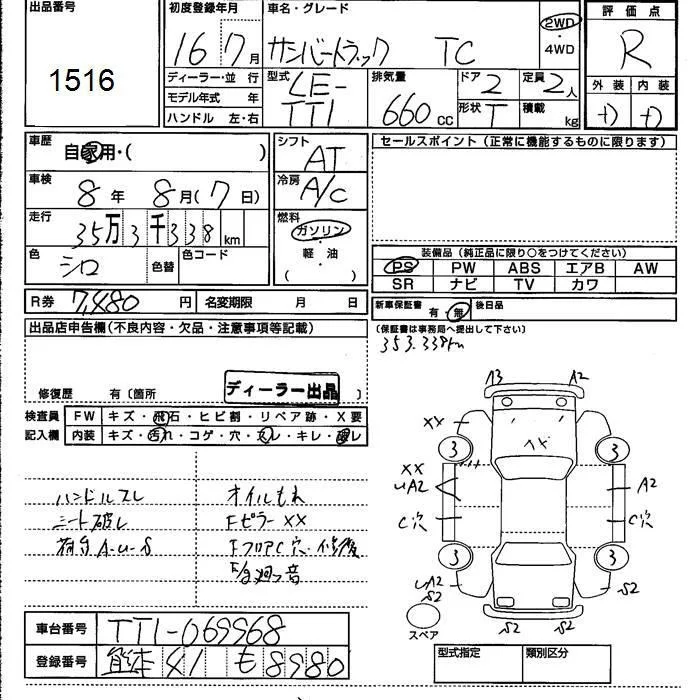 出品番号
1516
初度登録年月
16年 7月
車名・グレード
サンバートラック TC
2WD
・4WD
評価点
R
外装 内装
D D
ディーラー・並行
モデル年式 年
ハンドル 左・右
型式
LE-
TT1
排気量
660cc
ドア 2
形状 T
定員 2人
積載 kg
車歴
自家用・( )
車検
8年 8月(7日)
走行
35万3千338km
色
シロ
色替
色コード
シフト
AT
冷房
A/C
燃料
ガソリン
・軽油
( )
セールスポイント(正常に機能するものに限ります)
装備品(純正品に限り○をつけてください)
PS PW ABS エアB AW
SR ナビ TV カワ
R券 7,480円 名変期限 月 日
新車保証書 有・無 後日品
(保証書は事務局へ提出して下さい)
353.338km
出品店申告欄(不良内容・欠品・注意事項等記載)
修復歴 有〔箇所 〕
ディーラー出品
検査員 FW キズ・飛石・ヒビ割・リペア跡・X要
記入欄 内装 キズ・汚れ・コゲ・穴・スレ・キレ・破レ
ハンドルスレ オイルもれ
シート破レ FピラーXX
荷台A-U-S FフロアC穴・修復
A3 A2
XX XX
3 3
XX
UA2 A2
C穴 C穴
3 3
UA2
S2 S2
S2 S2
スペア
車台番号 TT1-069968
登録番号 熊本 41 も 8980
型式指定 類別区分